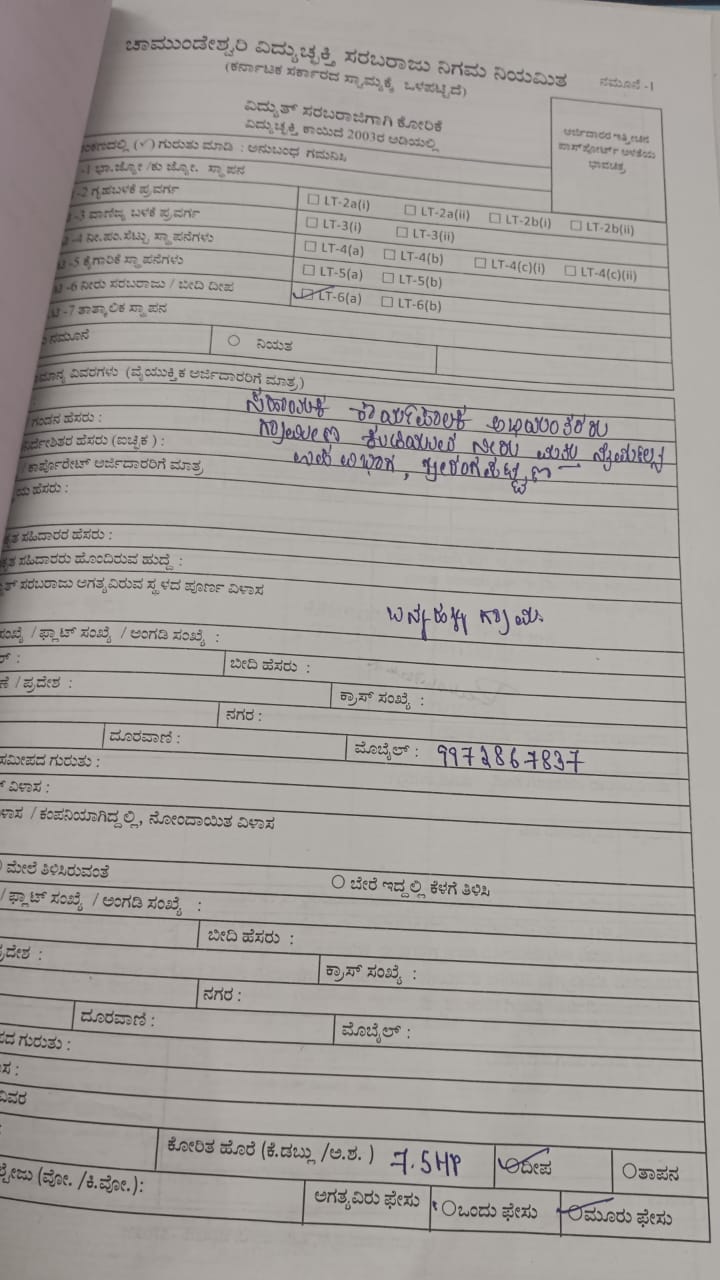 ಚಾಮುಂಡೇಶ್ವರಿ ವಿದ್ಯುಚ್ಛಕ್ತಿ ಸರಬರಾಜು ನಿಗಮ ನಿಯಮಿತ
ನಮೂನೆ -1
(ಕರ್ನಾಟಕ ಸರ್ಕಾರದ ಸ್ವಾಮ್ಯಕ್ಕೆ ಒಳಪಟ್ಟಿದೆ)
ವಿದ್ಯುತ್ ಸರಬರಾಜಿಗಾಗಿ ಕೋರಿಕೆ
ವಿದ್ಯುಚ್ಛಕ್ತಿ ಕಾಯಿದೆ 2003ರ ಅಡಿಯಲ್ಲಿ
ಅರ್ಜಿದಾರರ ಇತ್ತೀಚಿನ
ಪಾಸ್‌ಪೋರ್ಟ್ ಅಳತೆಯ
ಭಾವಚಿತ್ರ
(✓) ಗುರುತು ಮಾಡಿ : ಅನುಬಂಧ ಗಮನಿಸಿ
-1 ಭಾ.ಜ್ಯೋ /ಕು ಜ್ಯೋ. ಸ್ಥಾಪನ
-2 ಗೃಹಬಳಕೆ ಪ್ರವರ್ಗ ☐ LT-2a(i) ☐ LT-2a(ii) ☐ LT-2b(i) ☐ LT-2b(ii)
-3 ವಾಣಿಜ್ಯ ಬಳಕೆ ಪ್ರವರ್ಗ ☐ LT-3(i) ☐ LT-3(ii)
-4 ನೀ.ಪಂ.ಸೆಟ್ಟು ಸ್ಥಾಪನೆಗಳು ☐ LT-4(a) ☐ LT-4(b) ☐ LT-4(c)(i) ☐ LT-4(c)(ii)
-5 ಕೈಗಾರಿಕೆ ಸ್ಥಾಪನೆಗಳು ☐ LT-5(a) ☐ LT-5(b)
-6 ನೀರು ಸರಬರಾಜು / ಬೀದಿ ದೀಪ ☑ LT-6(a) ☐ LT-6(b)
-7 ತಾತ್ಕಾಲಿಕ ಸ್ಥಾಪನ
ನಮೂನೆ ○ ನಿಯತ
ವಿವರಗಳು (ವೈಯುಕ್ತಿಕ ಅರ್ಜಿದಾರರಿಗೆ ಮಾತ್ರ)
ಸಹಾಯಕ ಕಾರ್ಯಪಾಲಕ ಅಭಿಯಂತರರು
ಗಂಡನ ಹೆಸರು :
ಗ್ರಾಮೀಣ ಕುಡಿಯುವ ನೀರು ಮತ್ತು ನೈರ್ಮಲ್ಯ
ಹೆಸರು (ಐಚ್ಛಿಕ) :
ಉಪ ವಿಭಾಗ, ಶ್ರೀರಂಗಪಟ್ಟಣ
ಕಾರ್ಪೊರೇಟ್ ಅರ್ಜಿದಾರರಿಗೆ ಮಾತ್ರ
ಹೆಸರು :
ಸಹಿದಾರರ ಹೆಸರು :
ಸಹಿದಾರರು ಹೊಂದಿರುವ ಹುದ್ದೆ :
ಸರಬರಾಜು ಅಗತ್ಯವಿರುವ ಸ್ಥಳದ ಪೂರ್ಣ ವಿಳಾಸ
ಗ್ರಾಮ
/ ಫ್ಲಾಟ್ ಸಂಖ್ಯೆ / ಅಂಗಡಿ ಸಂಖ್ಯೆ :
ಬೀದಿ ಹೆಸರು :
/ ಪ್ರದೇಶ : ಕ್ರಾಸ್ ಸಂಖ್ಯೆ :
ನಗರ :
ದೂರವಾಣಿ : ಮೊಬೈಲ್ : 9972867837
ಸಮೀಪದ ಗುರುತು :
ವಿಳಾಸ :
/ ಕಂಪನಿಯಾಗಿದ್ದಲ್ಲಿ, ನೋಂದಾಯಿತ ವಿಳಾಸ
ಮೇಲೆ ತಿಳಿಸಿರುವಂತೆ ○ ಬೇರೆ ಇದ್ದಲ್ಲಿ ಕೆಳಗೆ ತಿಳಿಸಿ
/ ಫ್ಲಾಟ್ ಸಂಖ್ಯೆ / ಅಂಗಡಿ ಸಂಖ್ಯೆ :
ಬೀದಿ ಹೆಸರು :
ಕ್ರಾಸ್ ಸಂಖ್ಯೆ :
ನಗರ :
ದೂರವಾಣಿ : ಮೊಬೈಲ್ :
ಗುರುತು :
ವಿವರ
ಕೋರಿತ ಹೊರೆ (ಕೆ.ಡಬ್ಲು /ಅ.ಶ. ) 7.5HP ○ದೀಪ ○ತಾಪನ
(ವೋ. /ಕಿ.ವೋ.): ಅಗತ್ಯವಿರು ಫೇಸು ○ಒಂದು ಫೇಸು ○ಮೂರು ಫೇಸು